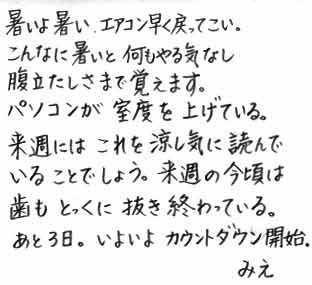 暑いよ暑い、エアコン早く戻ってこい。
こんなに暑いと何もやる気なし
腹立たしさまで覚えます。
パソコンが室度を上げている。
来週にはこれを涼し気に読んで
いることでしょう。来週の今頃は
歯もとっくに抜き終わっている。
あと3日。いよいよカウントダウン開始.
みえ